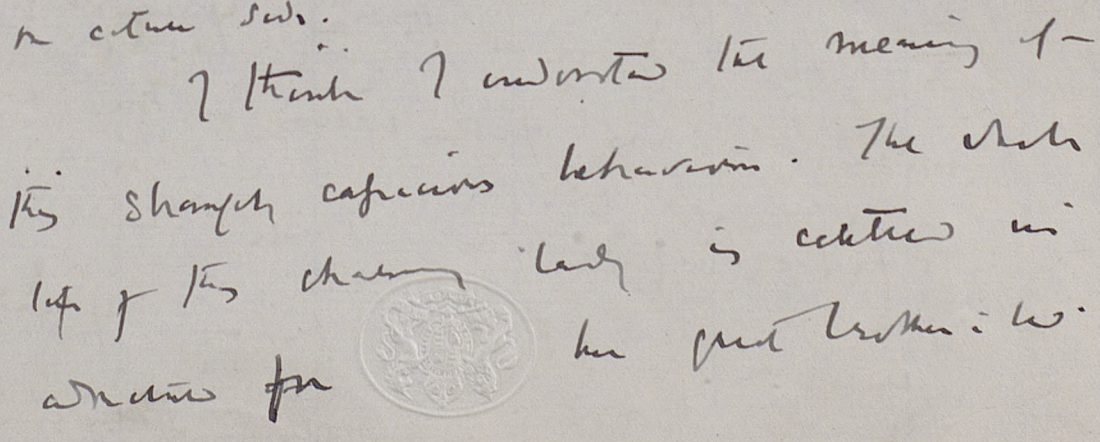 on either side.
I think I understand the meaning of
this strangely capricious behaviour. The whole
life of this charming lady is centred in
adoration for her great brother-in-law.